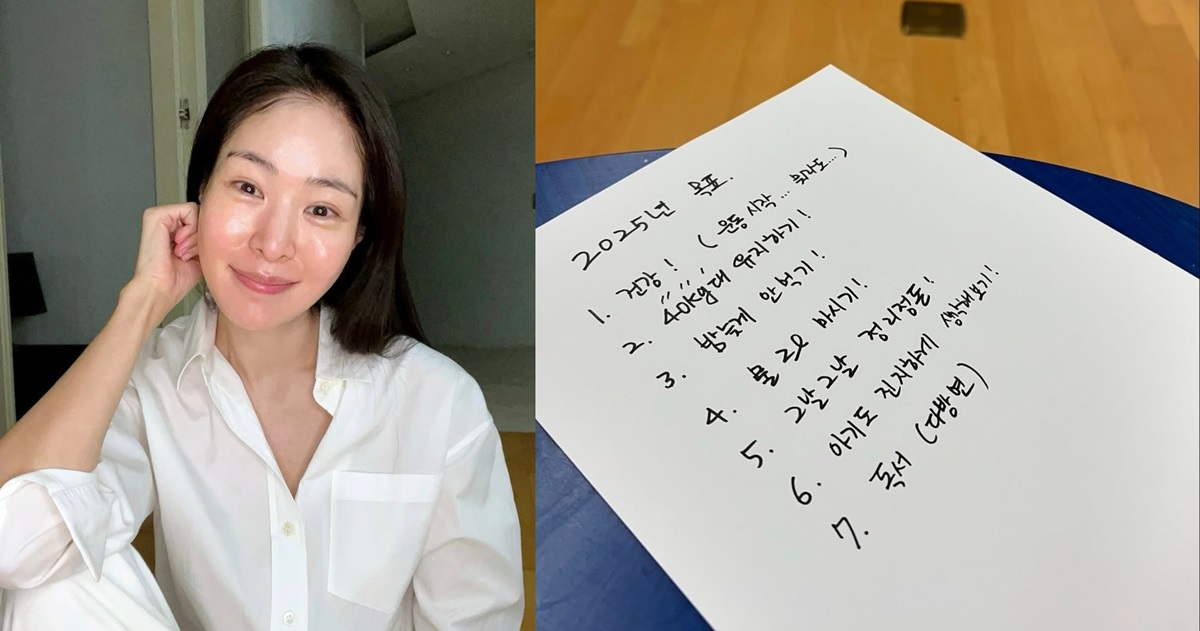 2025년 목표.
1. 건강! (운동 시작... 뭐라도...)
2. 40kg대 유지하기!
3. 밤늦게 안먹기!
4. 물 2l 마시기!
5. 그날그날 정리정돈!
6. 아기도 진지하게 생각해보기!
7. 독서 (다방면)